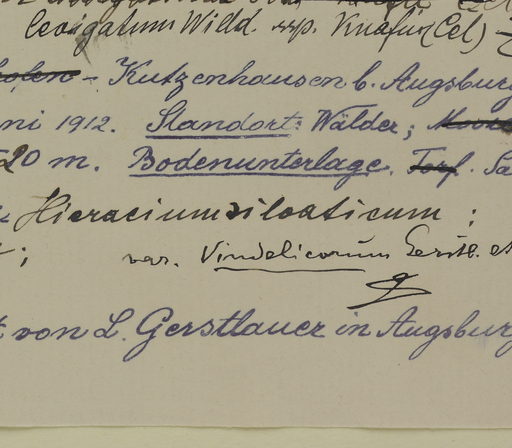 levigatum Willd. ssp. Knafii (Cel)
– Kutzenhausen b. Augsburg
ni 1912. Standort: Wälder;
20 m. Bodenunterlage. Torf. Sa
Hieracium silvaticum :
var. Vindelicorum Gerstl. et
t von L. Gerstlauer in Augsburg